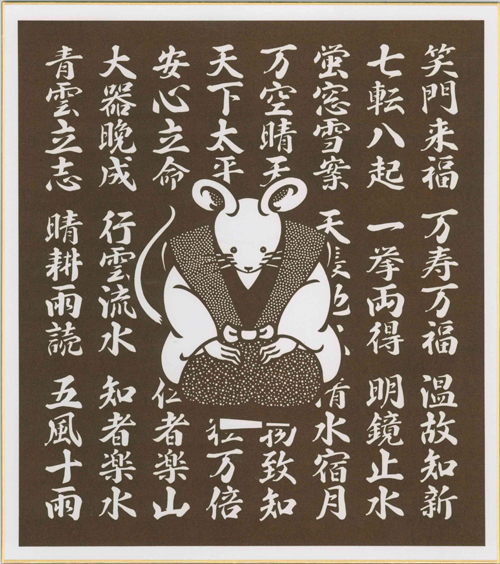 笑門来福 万寿万福 温故知新
七転八起 一挙両得 明鏡止水
蛍窓雪案 天長地久 清水宿月
万空晴天 物致知
天下太平 粒万倍
安心立命 仁者楽山
大器晩成 行雲流水 知者楽水
青雲立志 晴耕雨読 五風十雨